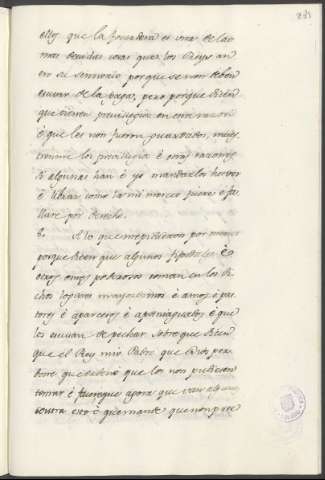 ellos que la fonsadera es una de las
mas devidas cosas que los Reyes an
en su sennorio porque se non deben
escusar de la pagar, pero porque dicen
que tienen privilegios en esta razon
è que les non fueron guardados, mues
trenme los privilegios è otras razones
si algunas han è yo mandarlos he ver
è librar como la mi merced fuere o fa
llare por derecho.
8. A lo que me pidieron por merced
porque dicen que algunos fijosdalgo è
otros omes poderosos toman en los di
chos logares mayordomos è amos è pas
tores è aparceros è apaniaguados è que
los escusan de pechar sobre que dicen
que el Rey mio Padre que Dios per
done que defendió que los non pudiesen
tomar è fuere que agora que van algunos
contra esto è que mande que non pase